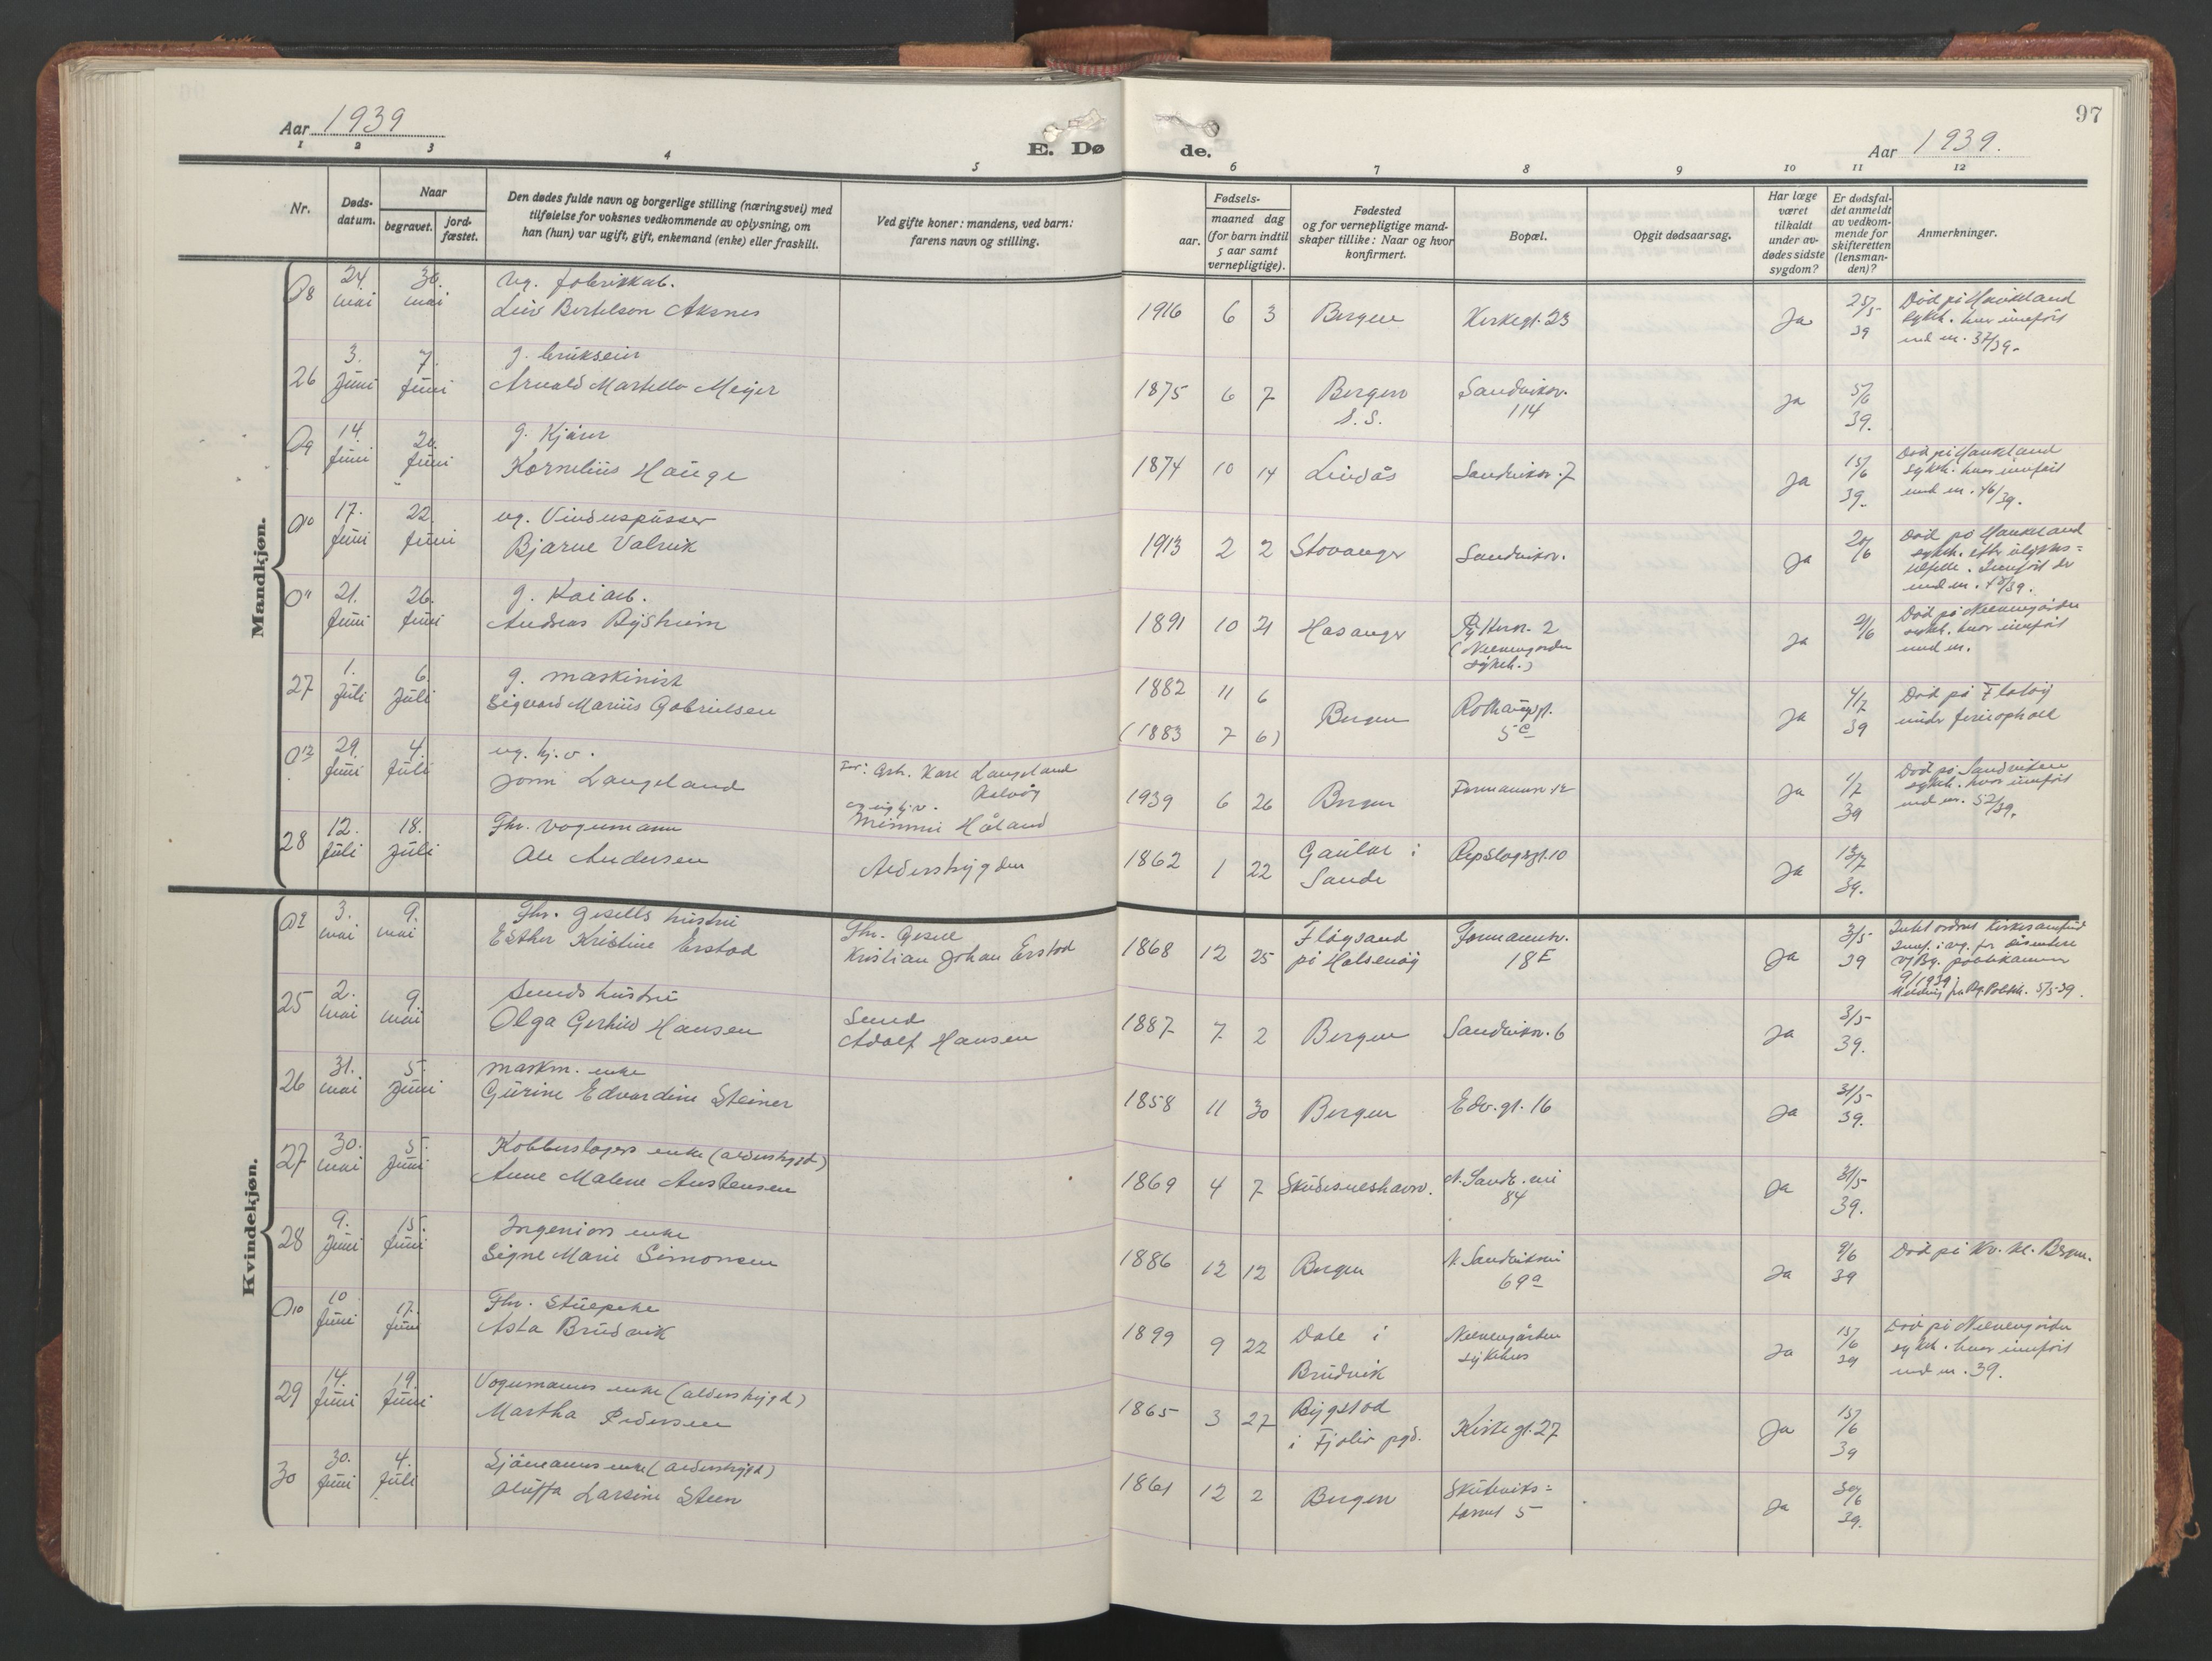 97
Aar 1939
E. Døde.
Aar 1939.
1 2 3 4 5 6 7 8 9 10 11 12
Nr.
Dødsdatum.
Naar
begravet.
jordfæstet.
Den dødes fulde navn og borgerlige stilling (næringsvei) med
tilføielse for voksnes vedkommende av oplysning, om
han (hun) var ugift, gift, enkemand (enke) eller fraskilt.
Ved gifte koner: mandens, ved barn:
farens navn og stilling.
Fødsels-
aar.
maaned dag
(for barn indtil
5 aar samt
vernepligtige).
Fødested
og for vernepligtige mand-
skaper tillike: Naar og hvor
konfirmert.
Bopæl.
Opgit dødsaarsag.
Har læge
været
tilkaldt
under av-
dødes sidste
sygdom?
Er dødsfal-
det anmeldt
av vedkom-
mende for
skifteretten
(lensman-
den)?
Anmerkninger.
Mandkjøn.
08 24. mai 30. mai ug. fabrikkarb.
Leiv Bertelsen Aksnes 1916 6 3 Bergen Kirkegt. 23 Ja 25/5 39 Död på Haukeland
sykeh. hvor innfört
und nr. 37/39.
26 3. Juni 7. Juni g. brukseier
Arvald Martello Meyer 1875 6 7 Bergen S. S. Sandviksv. 114 Ja 5/6 39.
09 14. Juni 20. Juni g. Kjörer
Kornelius Hauge 1874 10 14 Lindås Sandviksv. 7 Ja 15/6 39. Död på Haukeland
sykeh. hvor innfört
und nr. 46/39.
010 17. Juni 22. Juni ug. Vinduspusser
Bjarne Valvik 1913 2 2 Stavanger Sandviksv. Ja 20/6 Död på Haukeland
sykeh. efter ulykkes=
tilfelle. Innfört der
und nr. 48/39.
011 21. Juni 26. Juni g. Kaiarb.
Andreas Bysheim 1891 10 21 Hosanger 2
(Neevengården
sykeh.) Ja 21/6 Död på Neevengården
sykeh. hvor innfört
und nr.
27 1. Juli 6. Juli g. maskinist
Sigvard Marius Gabrielsen 1882 11 6
(1883 7 6) Bergen Rothaugsgt. 5c Ja 4/7 39 Död på Flatöy
under ferieophold
012 29. Juni 4. Juli ug. hj. v.
Jonn Langeland Far: Arb. Kåre Langeland
Askøy
og ug. hj. v.
Mimmi Håland 1939 6 26 Bergen Formannsv. 12 Ja 1/7 39 Död på Sandviken
sykeh. hvor innfört
und nr. 52/39.
28 12. Juli 18. Juli Fhv. vognmann
Ole Andersen Alderstrygden 1862 1 22 Gaular i
Sunde Repslagergt. 10 Ja 13/7 39.
Kvindekjøn.
02 3. mai 9. mai Fhv. gesells hustru
Esther Kristine Erstad Fhv. Gesell
Kristian Johan Erstad 1868 12 25 Flögsand
på Halsenöy Formannsv. 18E Ja 3/5 39 Intet ordnet kirkesamfund
Innf. i reg. for dissentere
v/Bg. politikammer
9/1939
Melding fra Bg. Politik. 5/5 39.
25 2. mai 9. mai Smeds hustru
Olga Gerhild Hansen Smed
Adolf Hansen 1887 7 2 Bergen Sandviksv. 6 Ja 3/5 39.
26 31. mai 5. Juni maskm. enke
Gurine Edvardine Steiner 1858 11 30 Bergen Edv. gt. 16 Ja 31/5 39.
27 30. mai 5. Juni Kobberslagers enke (alderstrygd)
Anne Malene Austensen 1869 4 7 Skudesneshavn. N. Sandv. vei 84 Ja 31/5 39.
28 9. Juni 15. Juni Ingeniörs enke
Signe Marie Simonsen 1886 12 12 Bergen N. Sandviksvei 69a Ja 9/6 39 Död på Kv. kl. Bergen.
010 10 Juni 17. Juni Fhv. Stuepike
Asta Brudvik 1899 9 22 Dale i
Brudvik Neevengården
sykehus Ja 15/6 39 Död på Neevengården
sykeh. hvor innfört
und nr. 39.
29 14. Juni 19. Juni Vognmanns enke (alderstrygd)
Martha Pedersen 1865 3 27 Bygstad
i Fjaler pgd. Kirkegt. 27 Ja 15/6 39
30 30. Juni 4. Juli Sjömanns enke (alderstrygd)
Oluffa Larsine Steen 1861 12 2 Bergen Skuteviks=
torvet 5 Ja 30/6 39.